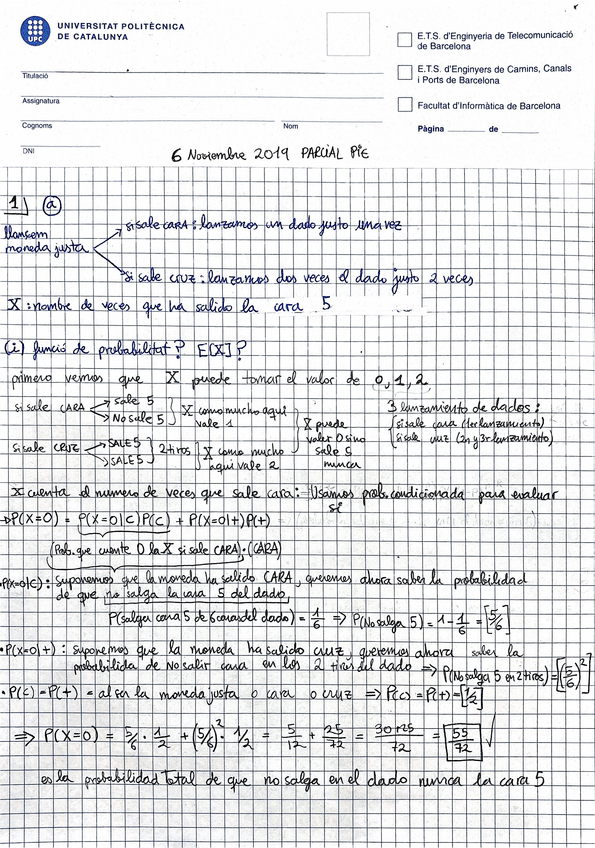 UNIVERSITAT POLITÈCNICA
DE CATALUNYA
UPC
E.T.S. d'Enginyeria de Telecomunicació
de Barcelona
E.T.S. d'Enginyers de Camins, Canals
i Ports de Barcelona
Facultat d'Informàtica de Barcelona
Titulació
Assignatura
Cognoms Nom
Pàgina de
DNI
6 Noviembre 2019 PARCIAL PIE
1 a
llancem
moneda justa
si sale CARA : lanzamos un dado justo una vez
si sale CRUZ : lanzamos dos veces el dado justo 2 veces
X : nombre de veces que ha salido la cara 5
(i) funció de probabilitat? E[X]?
primero vemos que X puede tomar el valor de 0, 1, 2
si sale CARA sale 5
No sale 5
X como mucho aqui
vale 1
si sale CRUZ SALE 5
SALE 5
2 tiros
X como mucho
aqui vale 2
X puede
valer 0 si no
sale 5
nunca
3 lanzamiento de dados :
si sale cara (1er lanzamiento)
si sale cruz (2n y 3r lanzamiento)
X cuenta el numero de veces que sale cara : Usamos prob. condicionada para evaluar
si
→ P(X=0) = P(X=0|C) P(C) + P(X=0|+) P(+)
(Prob. que cuente 0 la X si sale CARA) · (CARA)
P(X=0|C) : suponemos que la moneda ha salido CARA, queremos ahora saber la probabilidad
de que no salga la cara 5 del dado
P(salga cara 5 de 6 caras del dado) = 1/6 ⇒ P(No salga 5) = 1 - 1/6 = [5/6]
• P(X=0|+) : suponemos que la moneda ha salido cruz, queremos ahora saber la
probabilida de No salir cara en los 2 tiros del dado ⇒ P(No salga 5 en 2 tiros) = [(5/6)²]
• P(C) = P(+) = al ser la moneda justa o cara o cruz ⇒ P(C) = P(+) = [1/2]
⇒ P(X=0) = 5/6 · 1/2 + (5/6)² · 1/2 = 5/12 + 25/72 = 30+25/72 = 55/72 √
es la probabilidad Total de que no salga en el dado nunca la cara 5